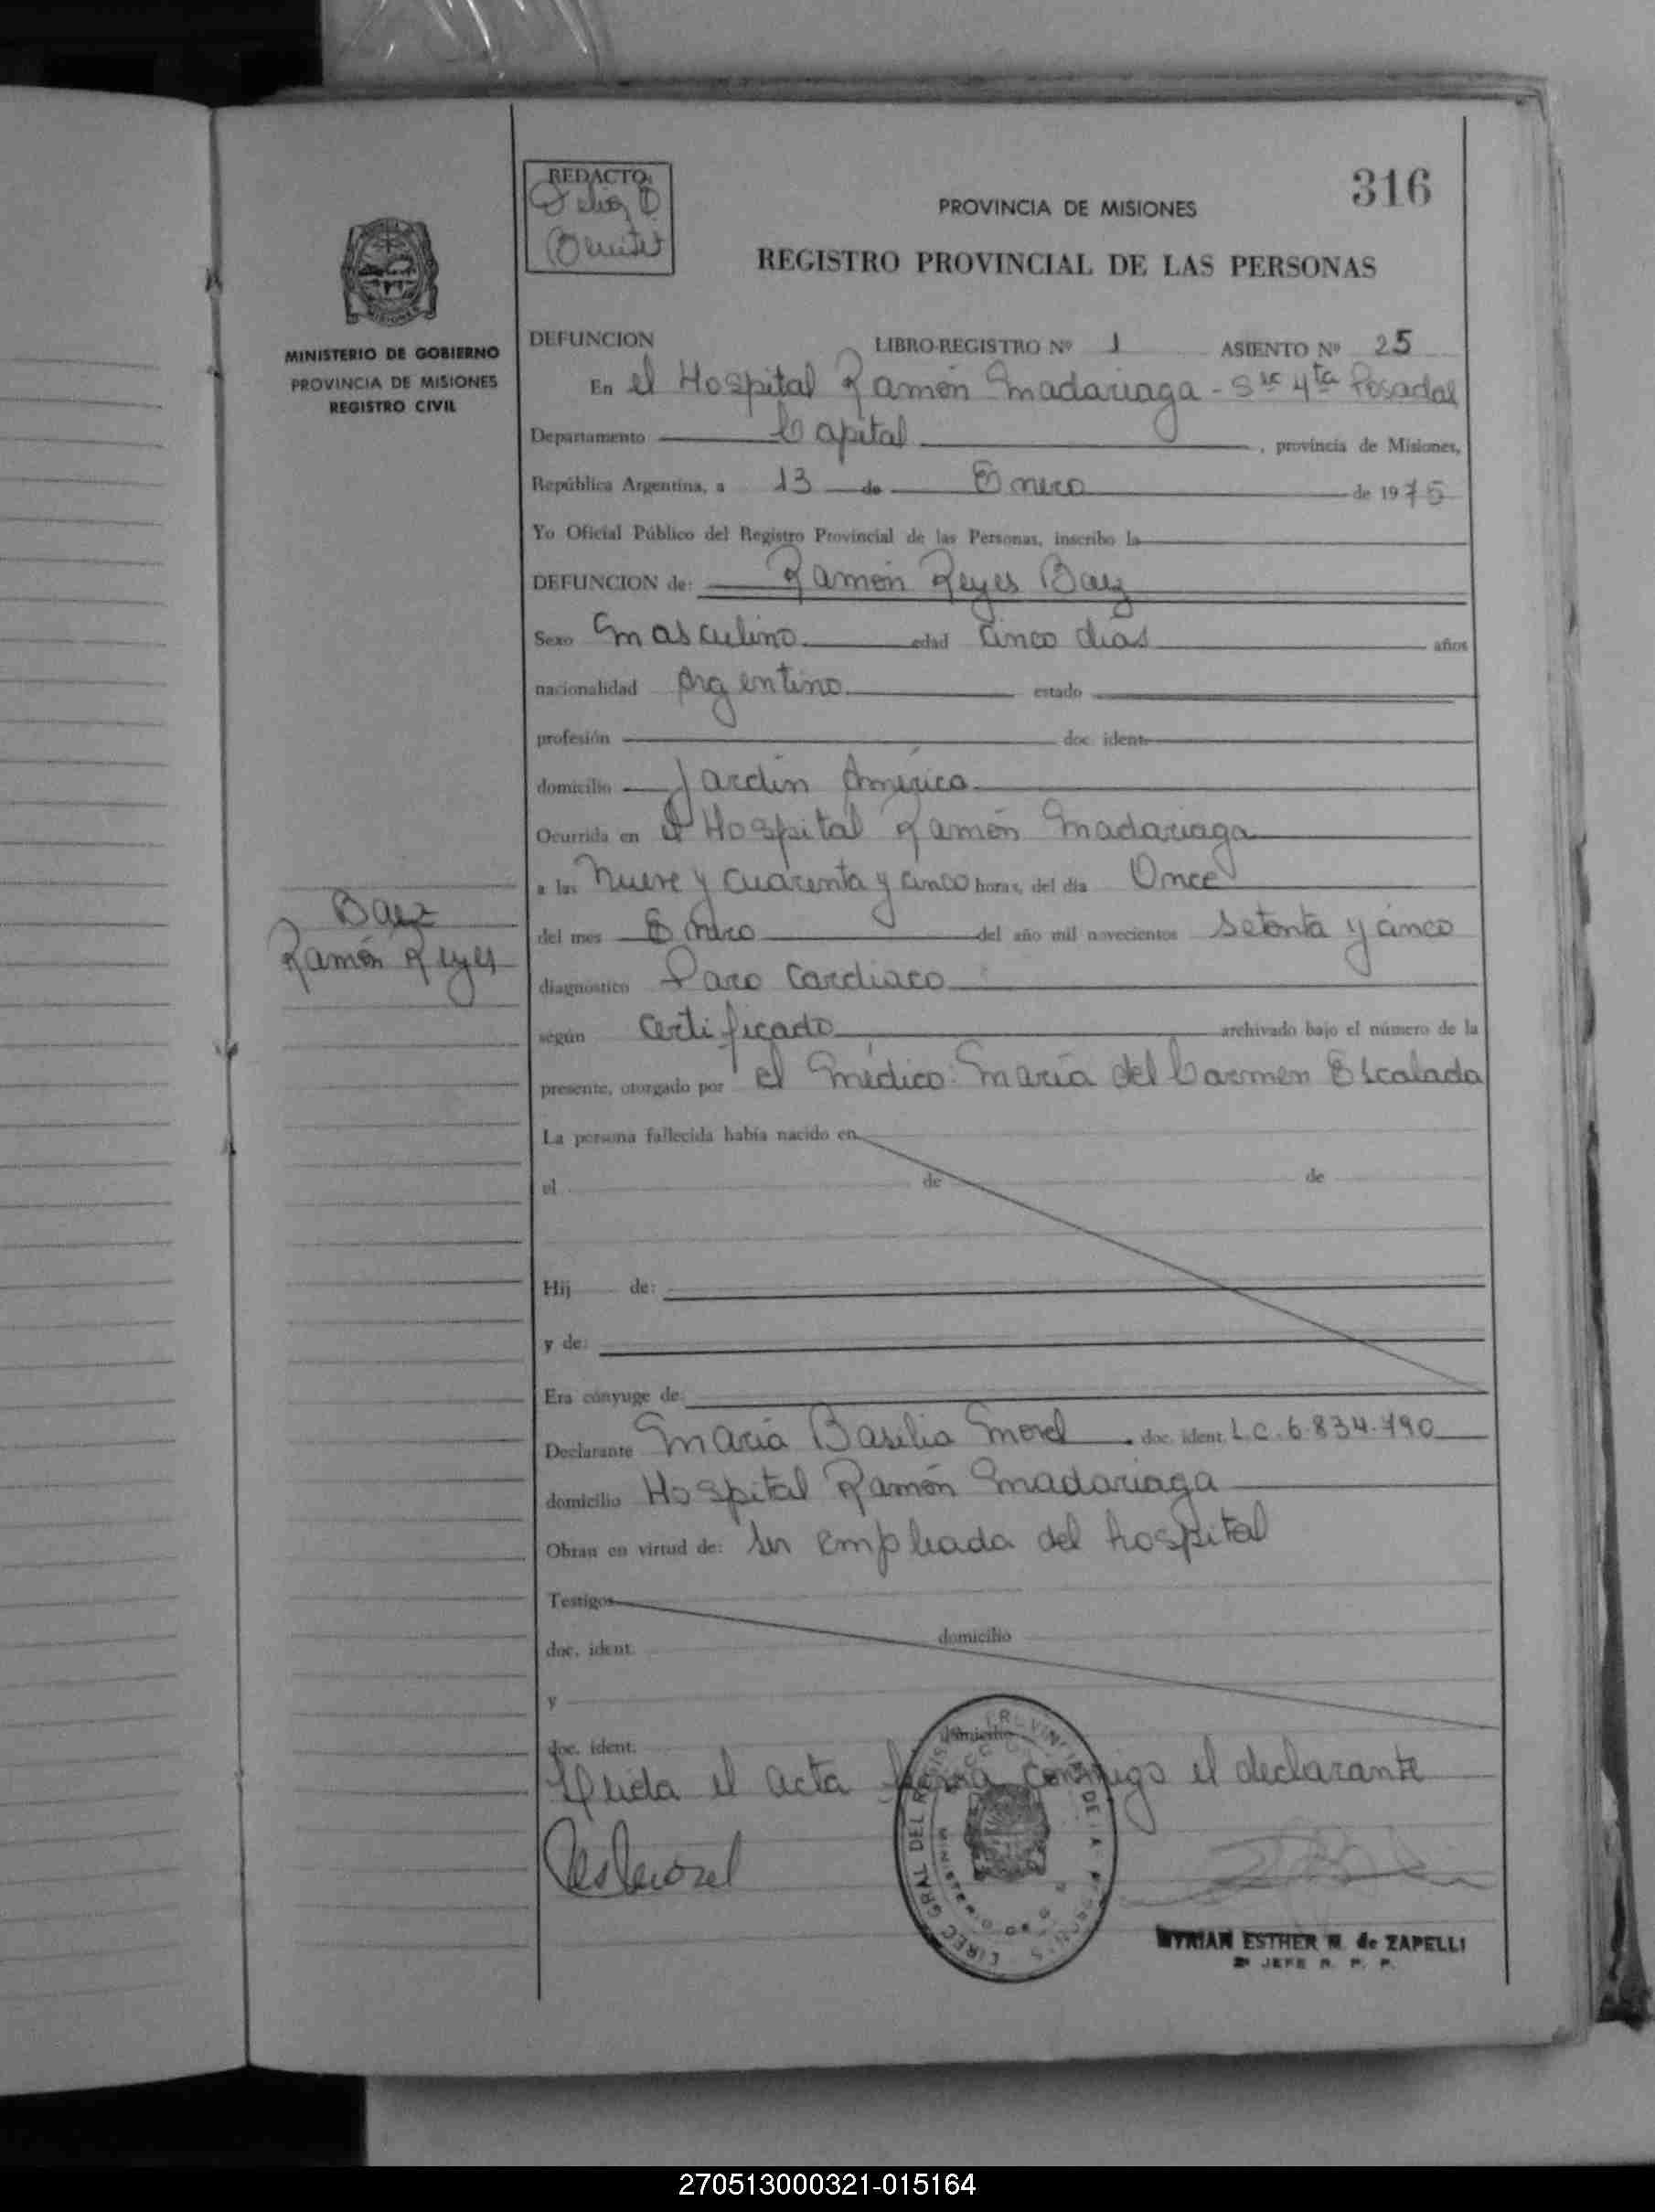 316
REDACTO:
Benitez
PROVINCIA DE MISIONES
REGISTRO PROVINCIAL DE LAS PERSONAS
MINISTERIO DE GOBIERNO
PROVINCIA DE MISIONES
REGISTRO CIVIL
DEFUNCION LIBRO-REGISTRO Nº 1 ASIENTO Nº 25
En el Hospital Ramón Madariaga - Sec 4ta Posadas
Departamento Capital, provincia de Misiones,
República Argentina, a 13 de Enero de 1975
Yo Oficial Público del Registro Provincial de las Personas, inscribo la
DEFUNCION de: Ramón Reyes Baez
Sexo Masculino edad Cinco dias años
nacionalidad Argentino estado
profesión doc. ident.
domicilio Jardín América
Ocurrida en el Hospital Ramón Madariaga
a las Nueve y Cuarenta y cinco horas, del día Once
del mes Enero del año mil novecientos setenta y cinco
Baez
Ramón Reyes
diagnóstico Paro Cardiaco
según Certificado archivado bajo el número de la
presente, otorgado por el Médico: María del Carmen Escalada
La persona fallecida había nacido en
el de de
Hij de:
y de:
Era cónyuge de:
Declarante María Basilia Morel doc. ident. L.C. 6.834.790
domicilio Hospital Ramón Madariaga
Obran en virtud de: ser empleada del hospital
Testigos
doc. ident. domicilio
y
doc. ident. domicilio
Leida el acta firma conmigo el declarante
MYRIAN ESTHER M. de ZAPELLI
2º JEFE R. P. P.
270513000321-015164